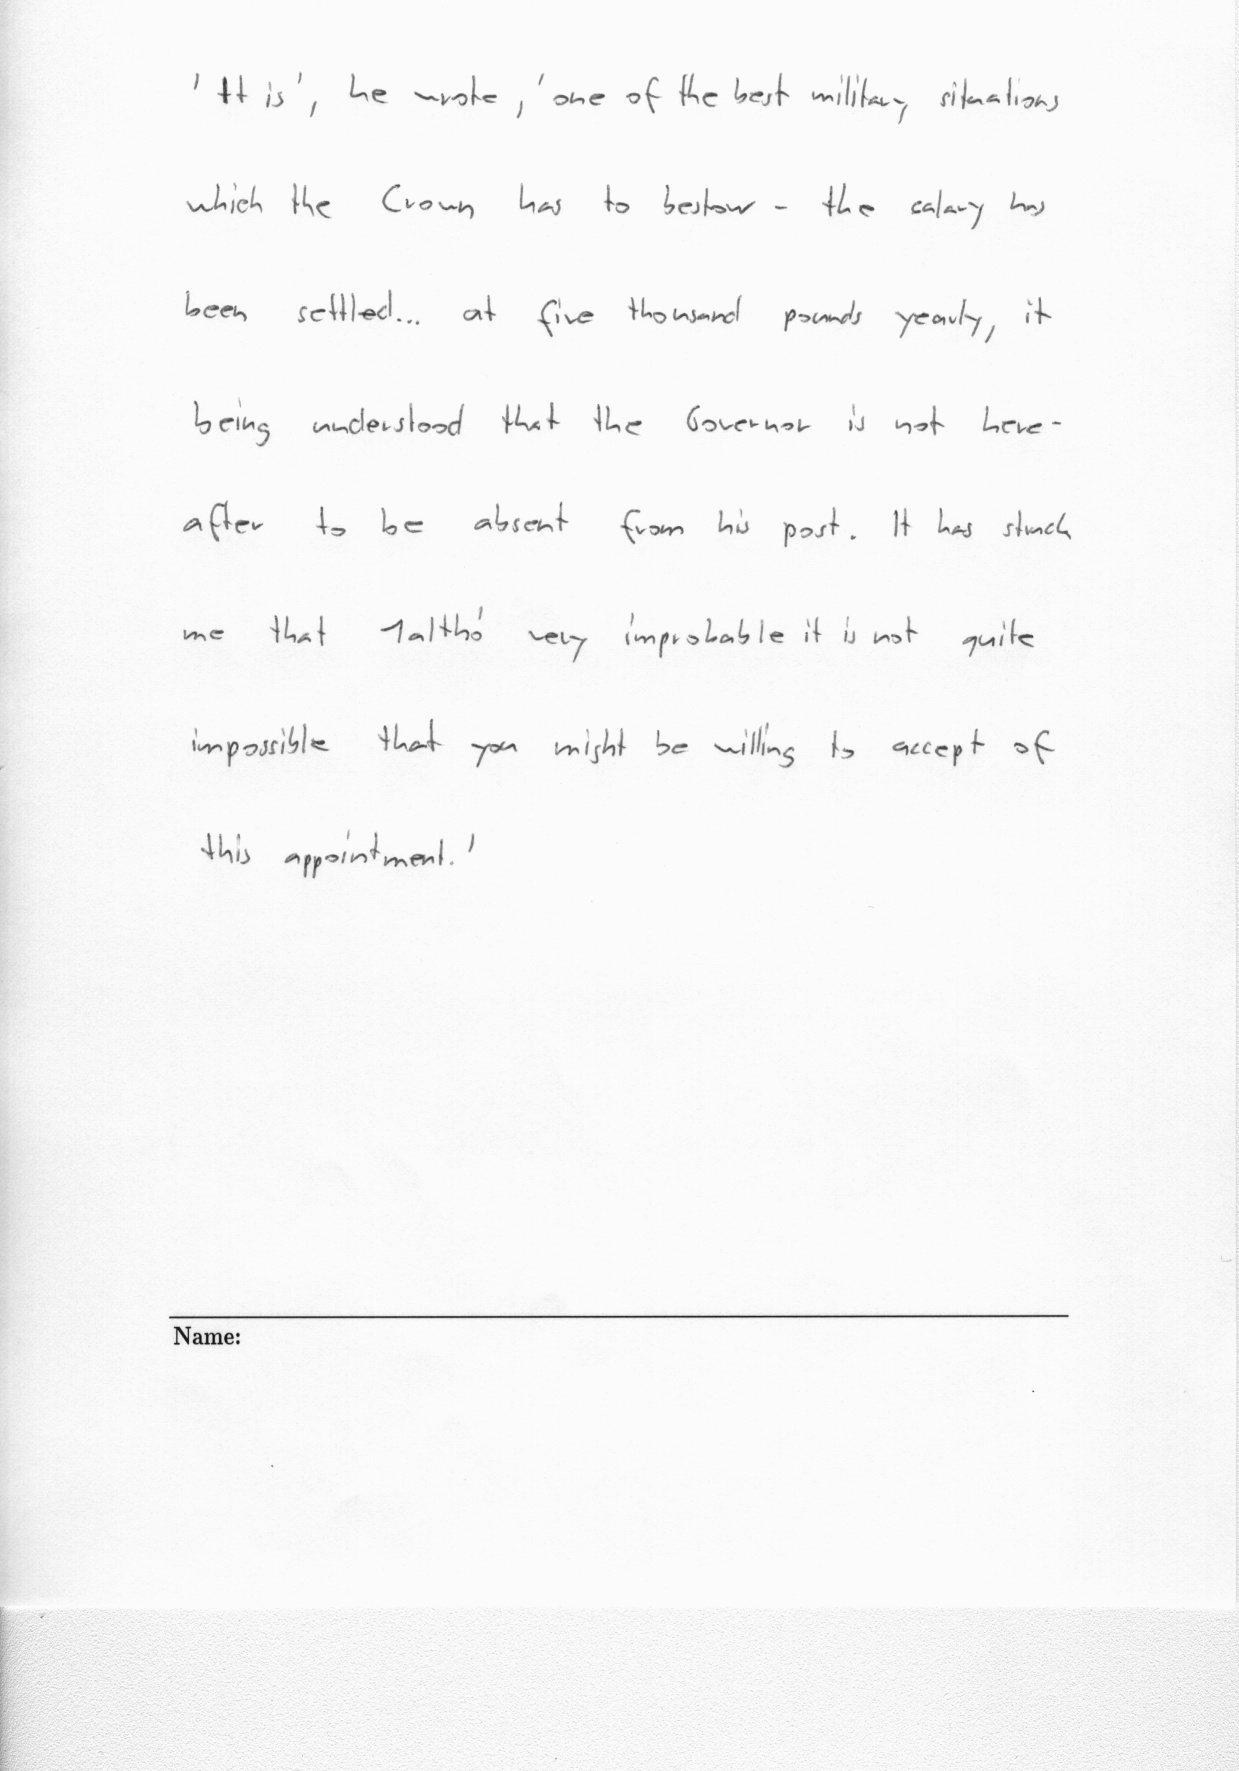 'It is', he wrote, 'one of the best military situations
which the Crown has to bestow - the salary has
been settled... at five thousand pounds yearly, it
being understood that the Governor is not here-
after to be absent from his post. It has struck
me that altho' very improbable it is not quite
impossible that you might be willing to accept of
this appointment.'
Name: